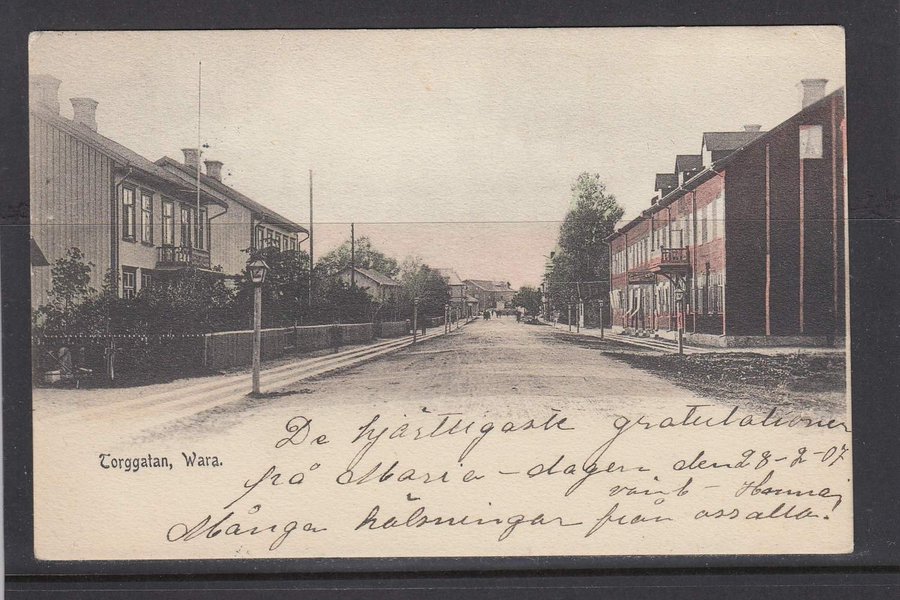 Torggatan, Wara.
De hjärtligaste gratulationer
på Maria-dagen den 28-2-07
Hanna
Många hälsningar från oss alla!